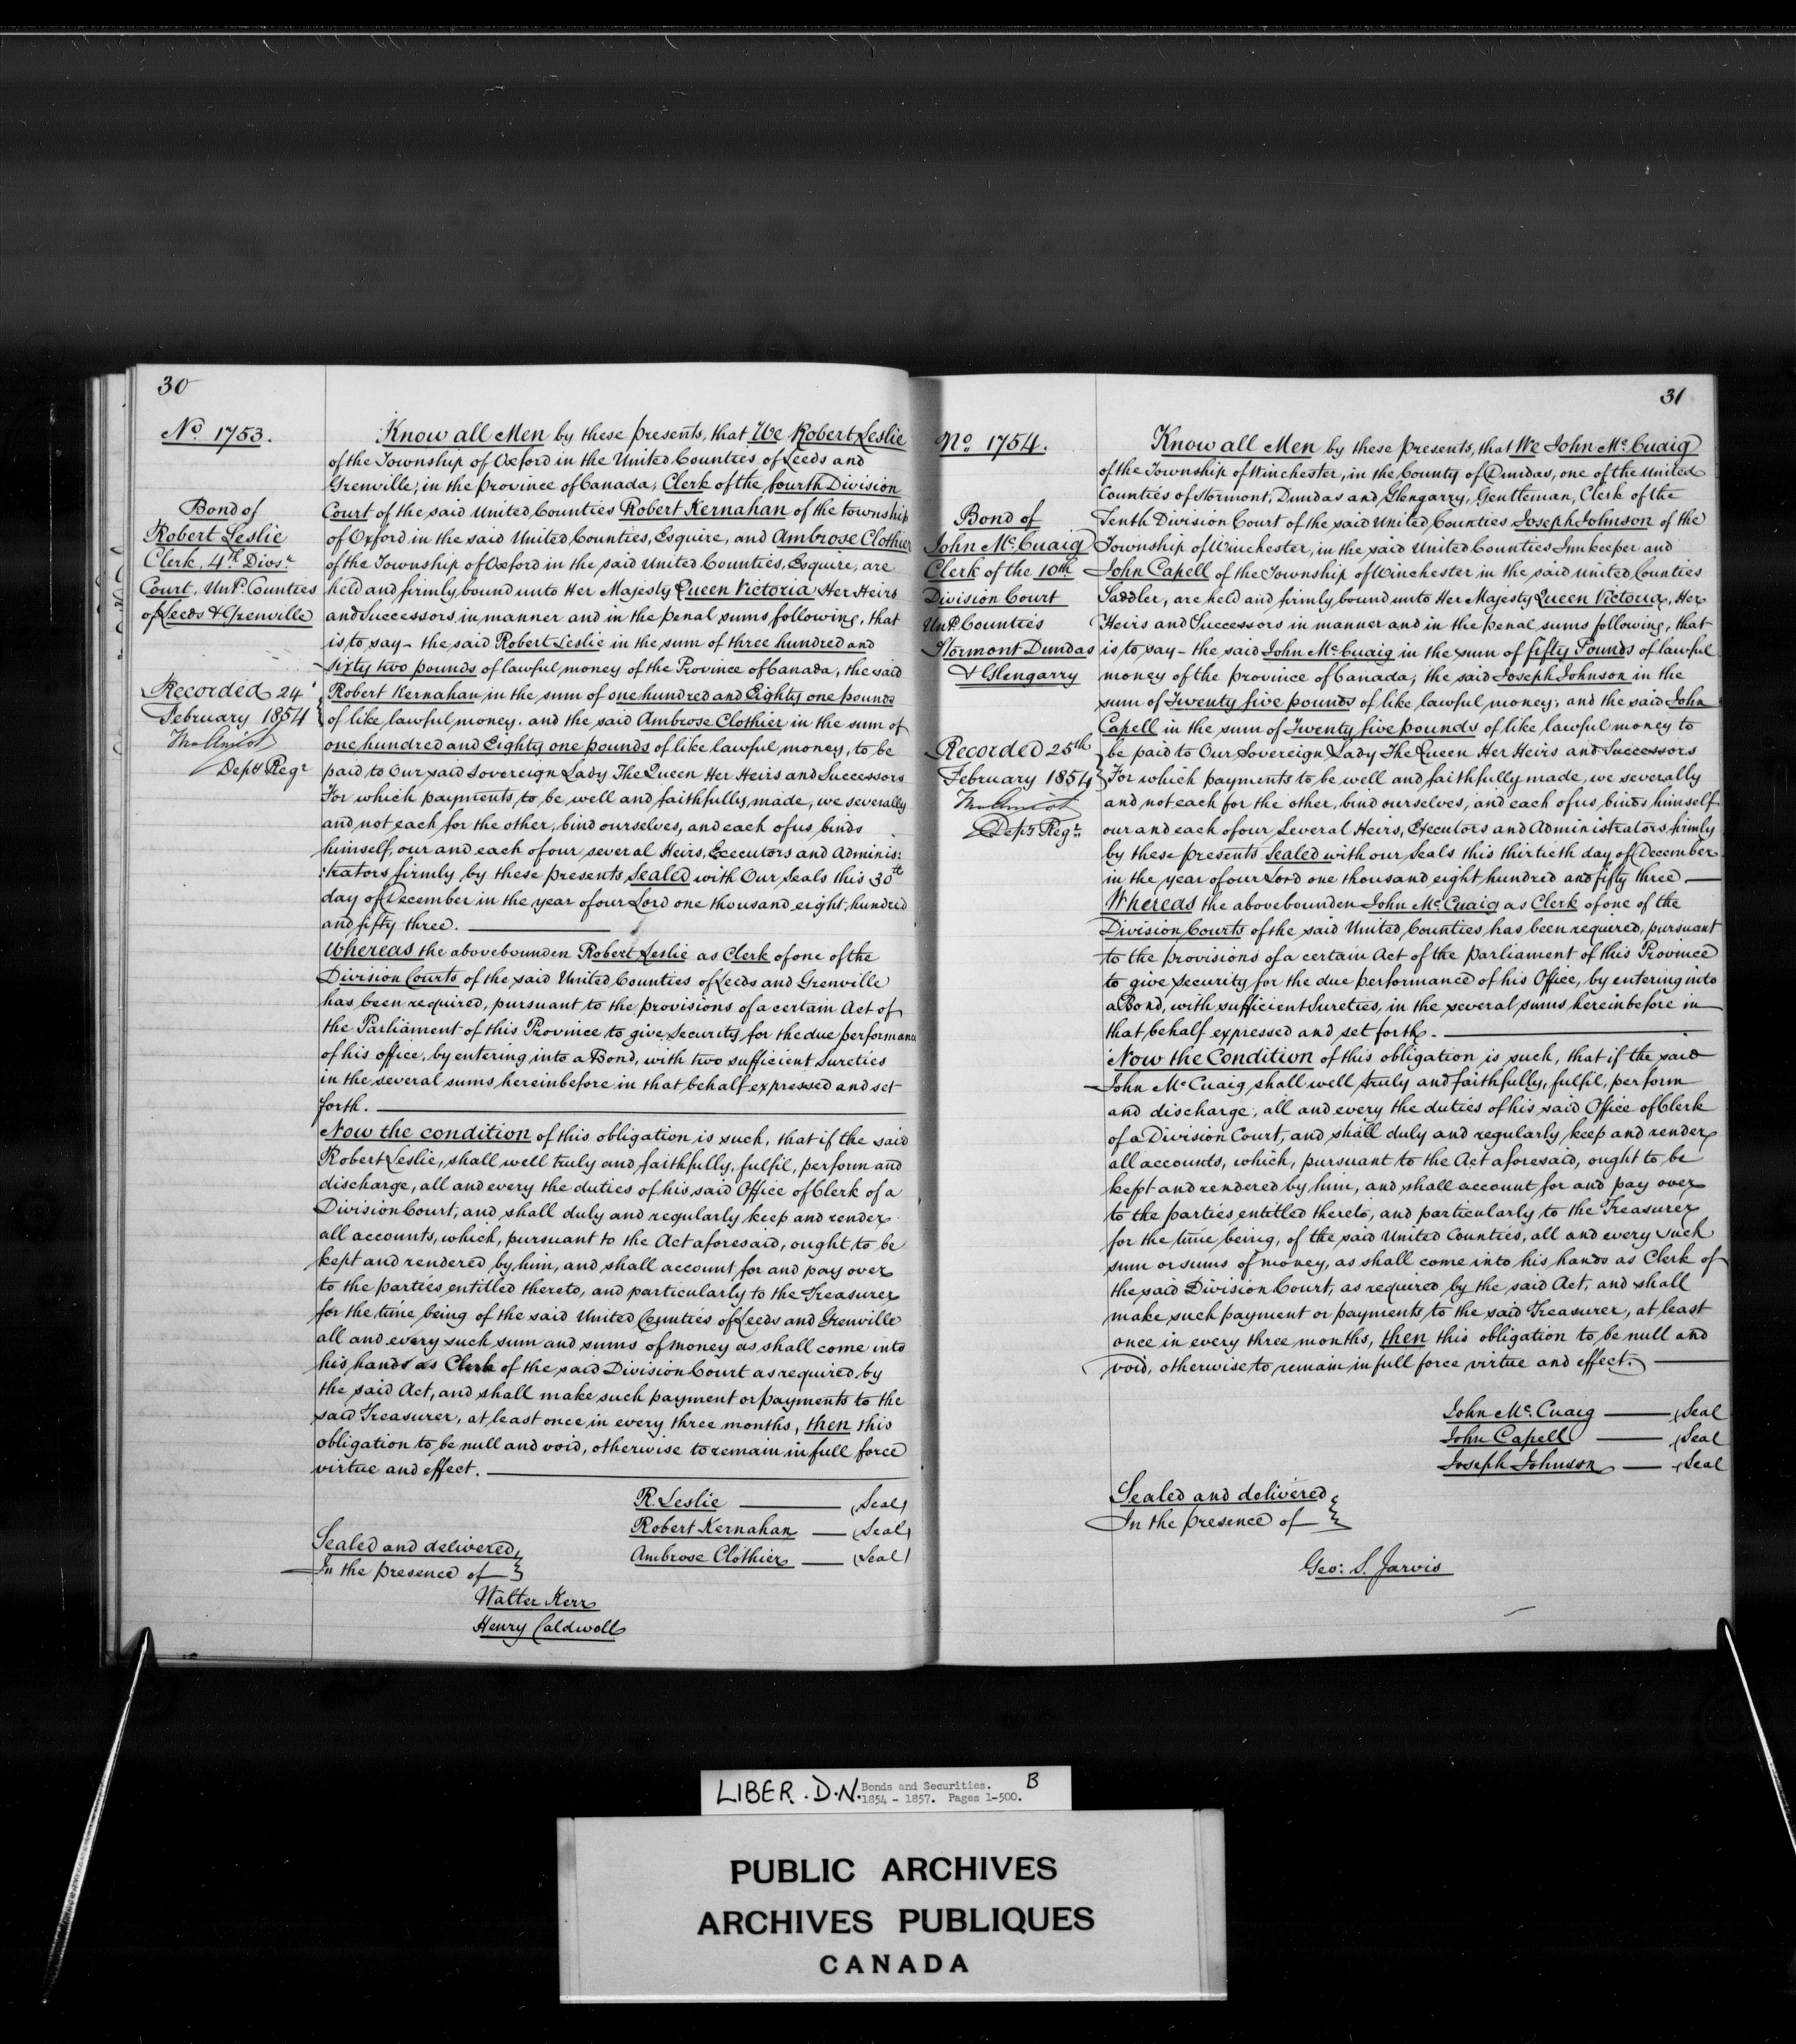 30
No. 1753.
Bond of
Robert Leslie
Clerk, 4th Divsn
Court, Und. Counties
of Leeds & Grenville
Recorded 24
February 1854
Depy Regr
Know all Men by these presents, that We Robert Leslie
of the Township of Oxford in the United Counties of Leeds and
Grenville, in the province of Canada, Clerk of the fourth Division
Court of the said United Counties Robert Kernahan of the township
of Oxford in the said United Counties, Esquire, and Ambrose Clothier
of the Township of Oxford in the said United Counties, Esquire, are
held and firmly bound unto Her Majesty Queen Victoria Her Heirs
and Successors in manner and in the penal sums following, that
is to say - the said Robert Leslie in the sum of three hundred and
sixty two pounds of lawful money of the Province of Canada, the said
Robert Kernahan in the sum of one hundred and Eighty one pounds
of like lawful money, and the said Ambrose Clothier in the sum of
one hundred and Eighty one pounds of like lawful money, to be
paid to Our said Sovereign Lady The Queen Her Heirs and Successors
For which payments to be well and faithfully made, we severally
and not each for the other, bind ourselves, and each of us binds
himself, our and each of our several Heirs, Executors and Adminis:
:trators firmly by these presents Sealed with Our Seals this 30th
day of December in the year of our Lord one thousand eight hundred
and fifty three.
Whereas the abovebounden Robert Leslie as Clerk of one of the
Division Courts of the said United Counties of Leeds and Grenville
has been required, pursuant to the provisions of a certain Act of
the Parliament of this Province to give Security for the due performance
of his office, by entering into a Bond, with two sufficient Sureties
in the several sums hereinbefore in that behalf expressed and set
forth.
Now the condition of this obligation is such, that if the said
Robert Leslie, shall well truly and faithfully, fulfil, perform and
discharge, all and every the duties of his said Office of Clerk of a
Division Court, and shall duly and regularly keep and render
all accounts, which, pursuant to the Act aforesaid, ought to be
kept and rendered by him, and shall account for and pay over
to the parties entitled thereto, and particularly to the Treasurer
for the time being of the said United Counties of Leeds and Grenville
all and every such sum and sums of money as shall come into
his hands as Clerk of the said Division Court as required by
the said Act, and shall make such payment or payments to the
said Treasurer, at least once in every three months, then this
obligation to be null and void, otherwise to remain in full force
virtue and effect.
R. Leslie (Seal)
Robert Kernahan (Seal)
Ambrose Clothier (Seal)
Sealed and delivered
In the presence of
Walter Kerr
Henry Caldwell
31
No. 1754.
Bond of
John McCuaig
Clerk of the 10th
Division Court
Und. Counties
Stormont Dundas
& Glengarry
Recorded 25th
February 1854
Depy Regr
Know all Men by these presents, that We John McCuaig
of the Township of Winchester, in the County of Dundas, one of the United
Counties of Stormont, Dundas and Glengarry, Gentleman, Clerk of the
Tenth Division Court of the said United Counties Joseph Johnson of the
Township of Winchester, in the said United Counties Innkeeper and
John Capell of the Township of Winchester in the said united Counties
Saddler, are held and firmly bound unto Her Majesty Queen Victoria, Her
Heirs and Successors in manner and in the penal sums following, that
is to say - the said John McCuaig in the sum of fifty Pounds of lawful
money of the province of Canada, the said Joseph Johnson in the
sum of Twenty five pounds of like lawful money, and the said John
Capell in the sum of Twenty five pounds of like lawful money to
be paid to Our Sovereign Lady The Queen Her Heirs and Successors
For which payments to be well and faithfully made, we severally
and not each for the other, bind ourselves, and each of us binds himself
our and each of our Several Heirs, Executors and Administrators firmly
by these presents Sealed with our Seals this thirtieth day of December
in the year of our Lord one thousand eight hundred and fifty three
Whereas the abovebounden John McCuaig as Clerk of one of the
Division Courts of the said United Counties has been required, pursuant
to the provisions of a certain Act of the Parliament of this Province
to give security for the due performance of his Office, by entering into
a Bond, with sufficient Sureties, in the several sums hereinbefore in
that behalf expressed and set forth.
Now the Condition of this obligation is such, that if the said
John McCuaig shall well truly and faithfully, fulfil, perform
and discharge, all and every the duties of his said Office of Clerk
of a Division Court, and shall duly and regularly keep and render
all accounts, which, pursuant to the Act aforesaid, ought to be
kept and rendered by him, and shall account for and pay over
to the parties entitled thereto, and particularly to the Treasurer
for the time being, of the said United Counties, all and every such
sum or sums of money, as shall come into his hands as Clerk of
the said Division Court, as required by the said Act, and shall
make such payment or payments to the said Treasurer, at least
once in every three months, then this obligation to be null and
void, otherwise to remain in full force virtue and effect.
John McCuaig (Seal
John Capell (Seal
Joseph Johnson (Seal
Sealed and delivered
In the presence of
Geo: S. Jarvis
LIBER. D.N. Bonds and Securities. B
1854 - 1857. Pages 1-500.
PUBLIC ARCHIVES
ARCHIVES PUBLIQUES
CANADA